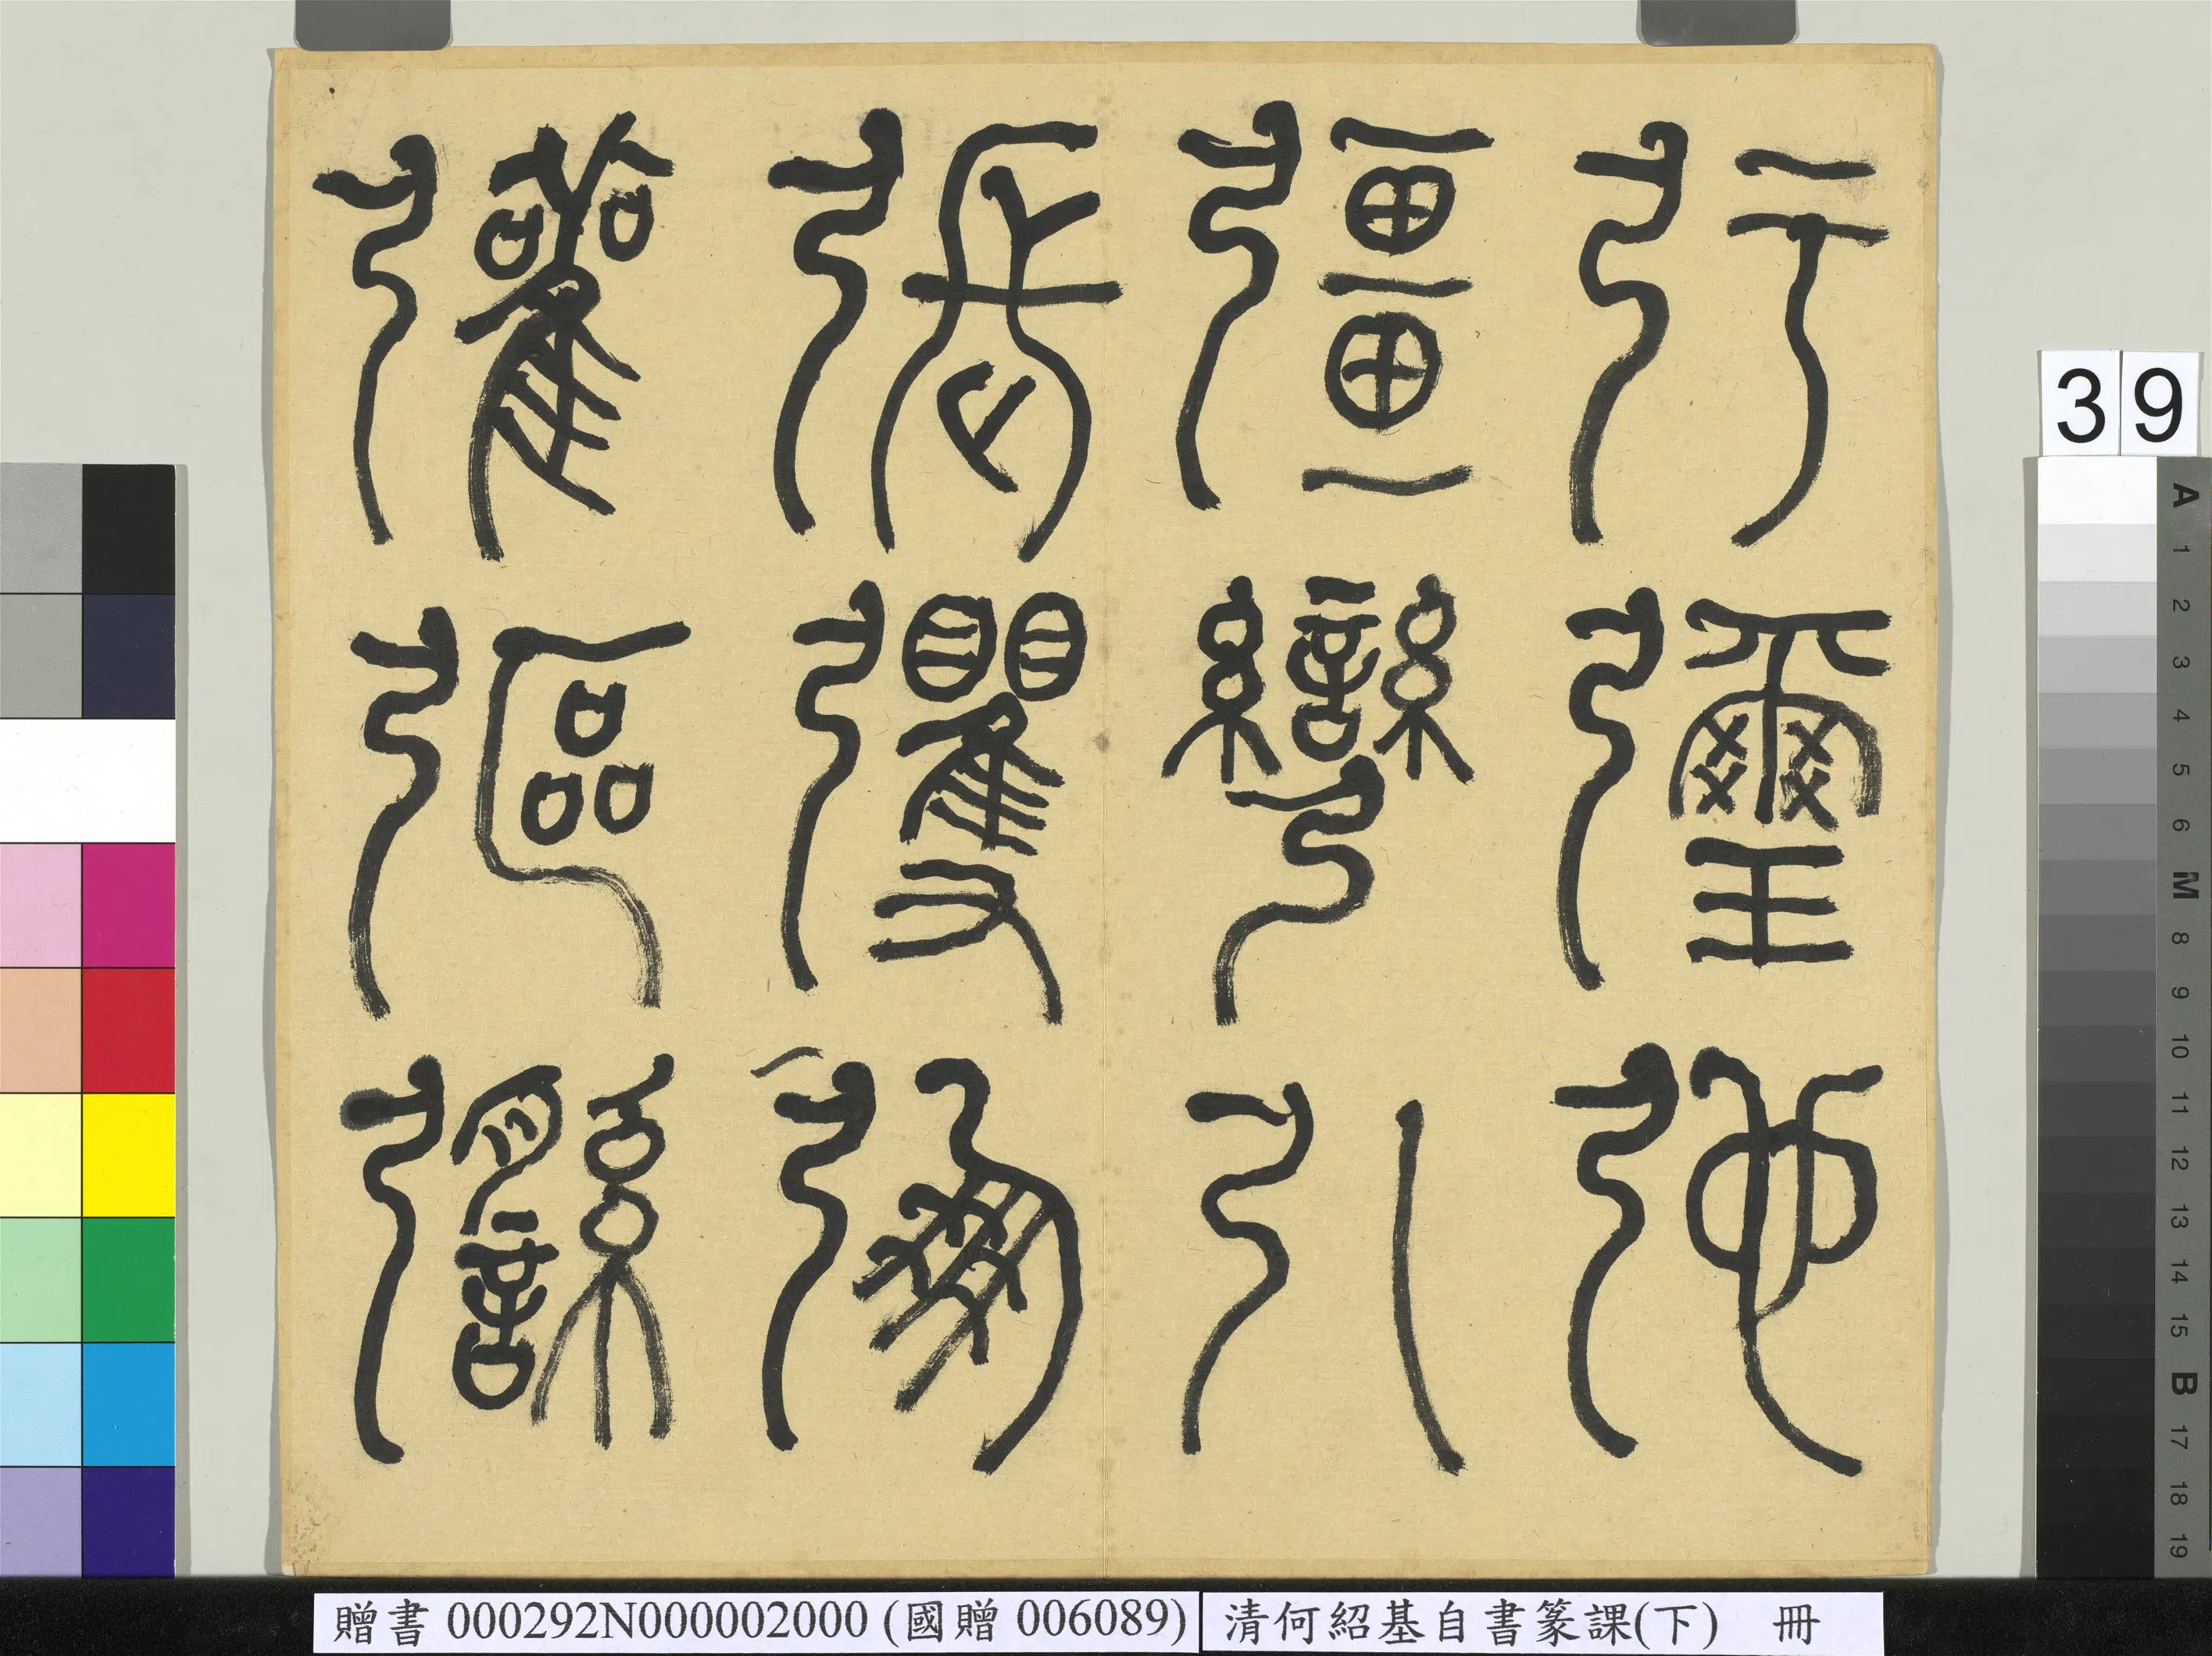 弙瓕弛
彊彎引
張彏弸
彄
39
A 1 2 3 4 5 6 M 8 9 10 11 12 13 14 15 B 17 18 19
贈書 000292N000002000 (國贈 006089)
清何紹基自書篆課(下) 冊